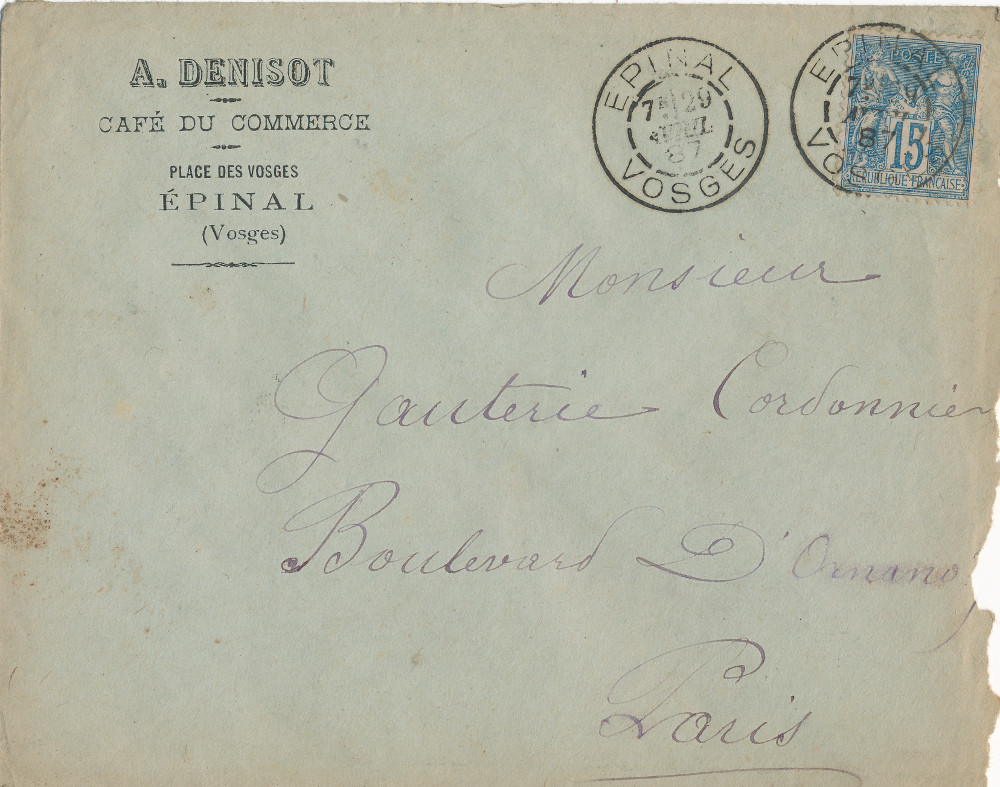 A. DENISOT
CAFÉ DU COMMERCE
PLACE DES VOSGES
ÉPINAL
(Vosges)
EPINAL
7 29
AVRIL
87
VOSGES
EPINAL
87
VOS
POSTE
15
REPUBLIQUE FRANÇAISE
Monsieur
Gauterie Cordonnier
Boulevard D'Ornano
Paris